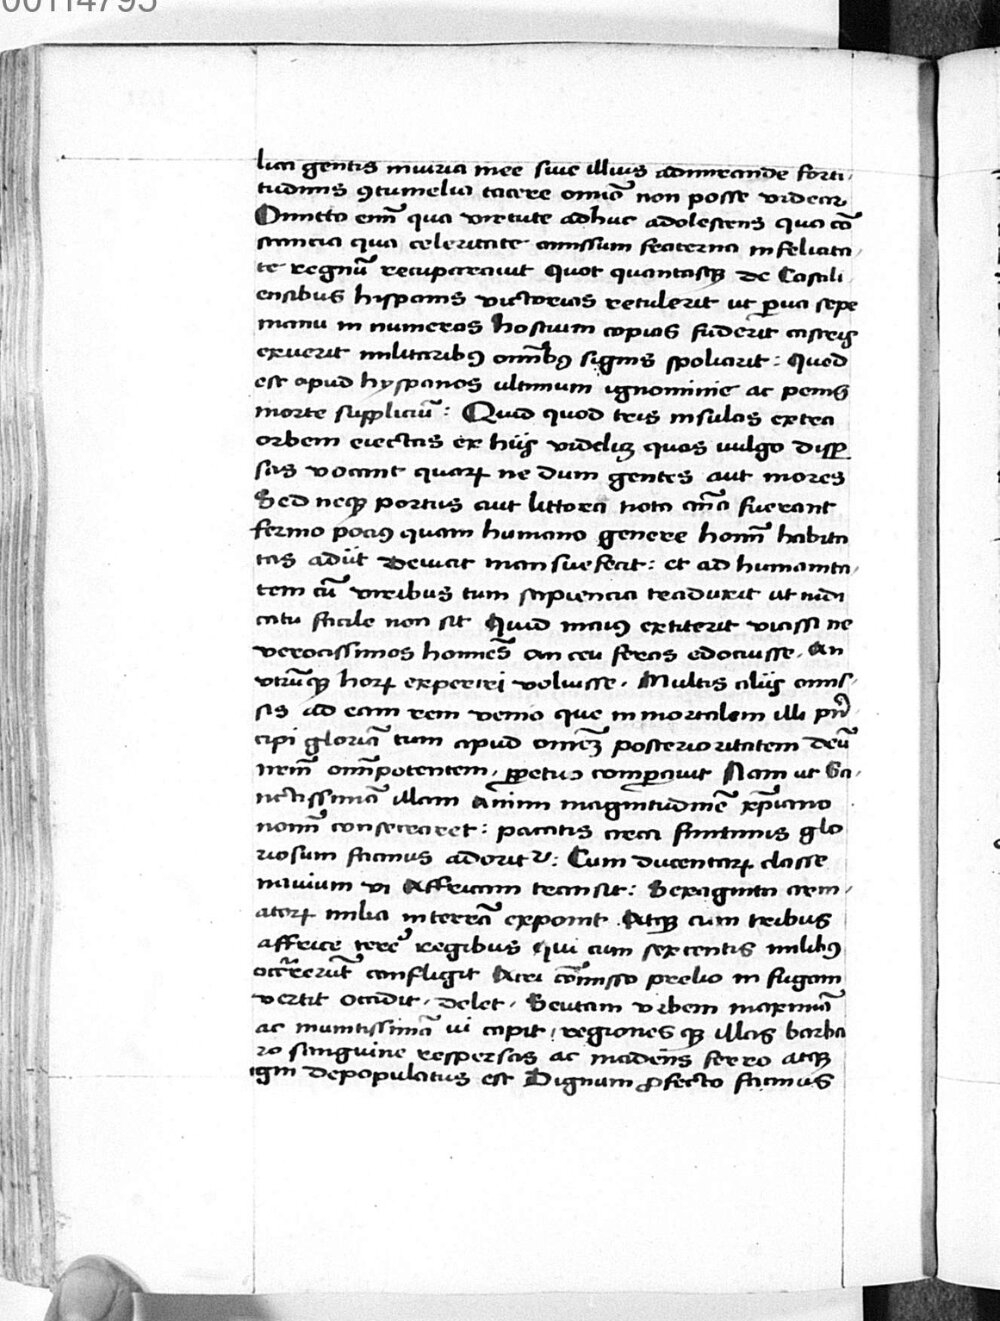 00114795
lica gentis iniuria mee siue illius admirande forti,
tudinis ꝯtumelia tacere omīa non posse videar
Omitto enī qua virtute adhuc adolescens qua cō
stancia qua celeritate amissum fraterna infelicita,
te regnū recuperauit Quot quantasqꝫ de Castili,
ensibus hispanis victorias retulerit ut ꝑua sepe
manu in numeras hostium copias fuderit castris
exuerit militaribꝯ omībꝯ signis spoliarit: Quod
est apud hyspanos ultimum ignominie ac penis
morte suppliciū: Quid quod tris insulas extra
orbem eiectas ex hiis videlicꝫ quas uulgo disꝑ
sas vocant quarꝝ ne dum gentes aut mores
Sed neqꝫ portus aut littora nota āna fuerant
fermo pociꝯ quam humano genere homī habita
tas adiit deuicit mansuefecit: et ad humanita,
tem cū viribus tum sapiencia traduxit ut iudi
catu facile non sit Quid maiꝯ extiterit viassi ne
verocissimos homiēs an ceu feras edocuisse. An
vtrūqꝫ horꝝ experiri voluisse. Multis aliis amis,
sis ad eam rem venio que inmortalem illi prī
cipi gloriā tum apud omēꝫ posterioritatem deū
nrem̄ om̄ipotentem, ꝑpetuo comꝑauit Nam ut Sa,
nctissimā illam Animi magnitudinē xp̄iano
nomī consecraret: pacatis circa finitimis glo
riosum facinus adoritᷣ: Cum ducentarꝝ classe
nauium vi Affricam transit: Sexaginta arm,
atorꝝ milia in terrā exponit Atqꝫ cum tribus
affrice terē regibus Qui cum sexcentis milibꝯ
occr̄rerūt confligit Acri cōmisso prelio in fugam
vertit occidit, delet, Seutam vrbem maximā
ac munitissimā ui capit, regiones qꝫ illas barba
ro sanguine respersas ac madens ferro atqꝫ
igni depopulatus est Dignum ꝓfecto facinus